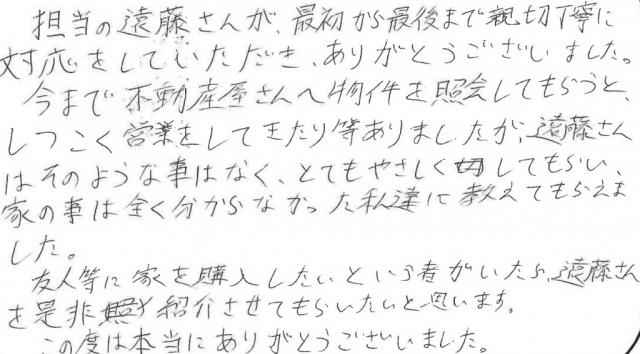 担当の遠藤さんが、最初から最後まで親切丁寧に
対応をしていただき、ありがとうございました。
今まで不動産屋さんへ物件を照会してもらうと、
しつこく営業をしてきたり等ありましたが、遠藤さん
はそのような事はなく、とてもやさしくしてもらい、
家の事は全く分からなかった私達に教えてもらえま
した。
友人等に家を購入したいという者がいたら、遠藤さん
を是非紹介させてもらいたいと思います。
この度は本当にありがとうございました。